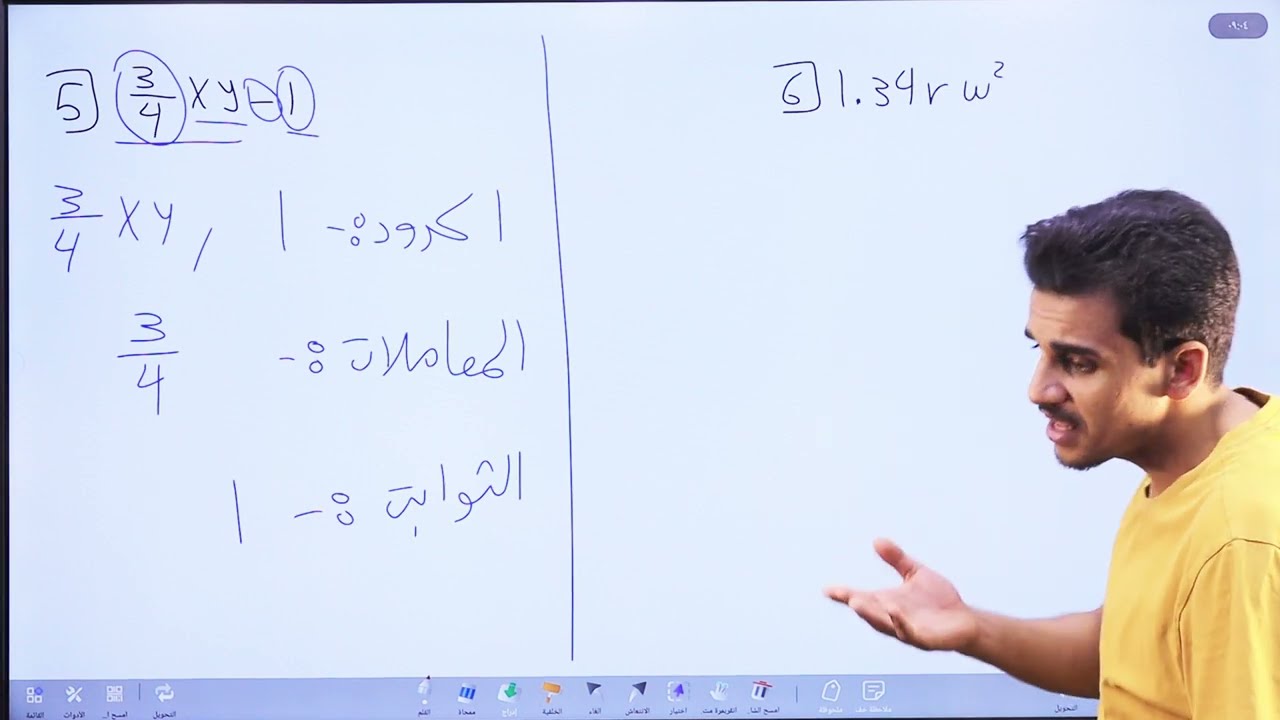 ٠٩:٠٤
5] 3/4 xy - 1
3/4 xy , 1 الحدود:-
3/4 المعاملات:-
1 الثوابت:-
6] 1.34 r w²
القائمة الأدوات امسح ا... التحويل القلم ممحاة إدراج الخلفية الغاء الانتعاش اختيار امسح الشا.. ملحوظة ملاحظة حف التحويل